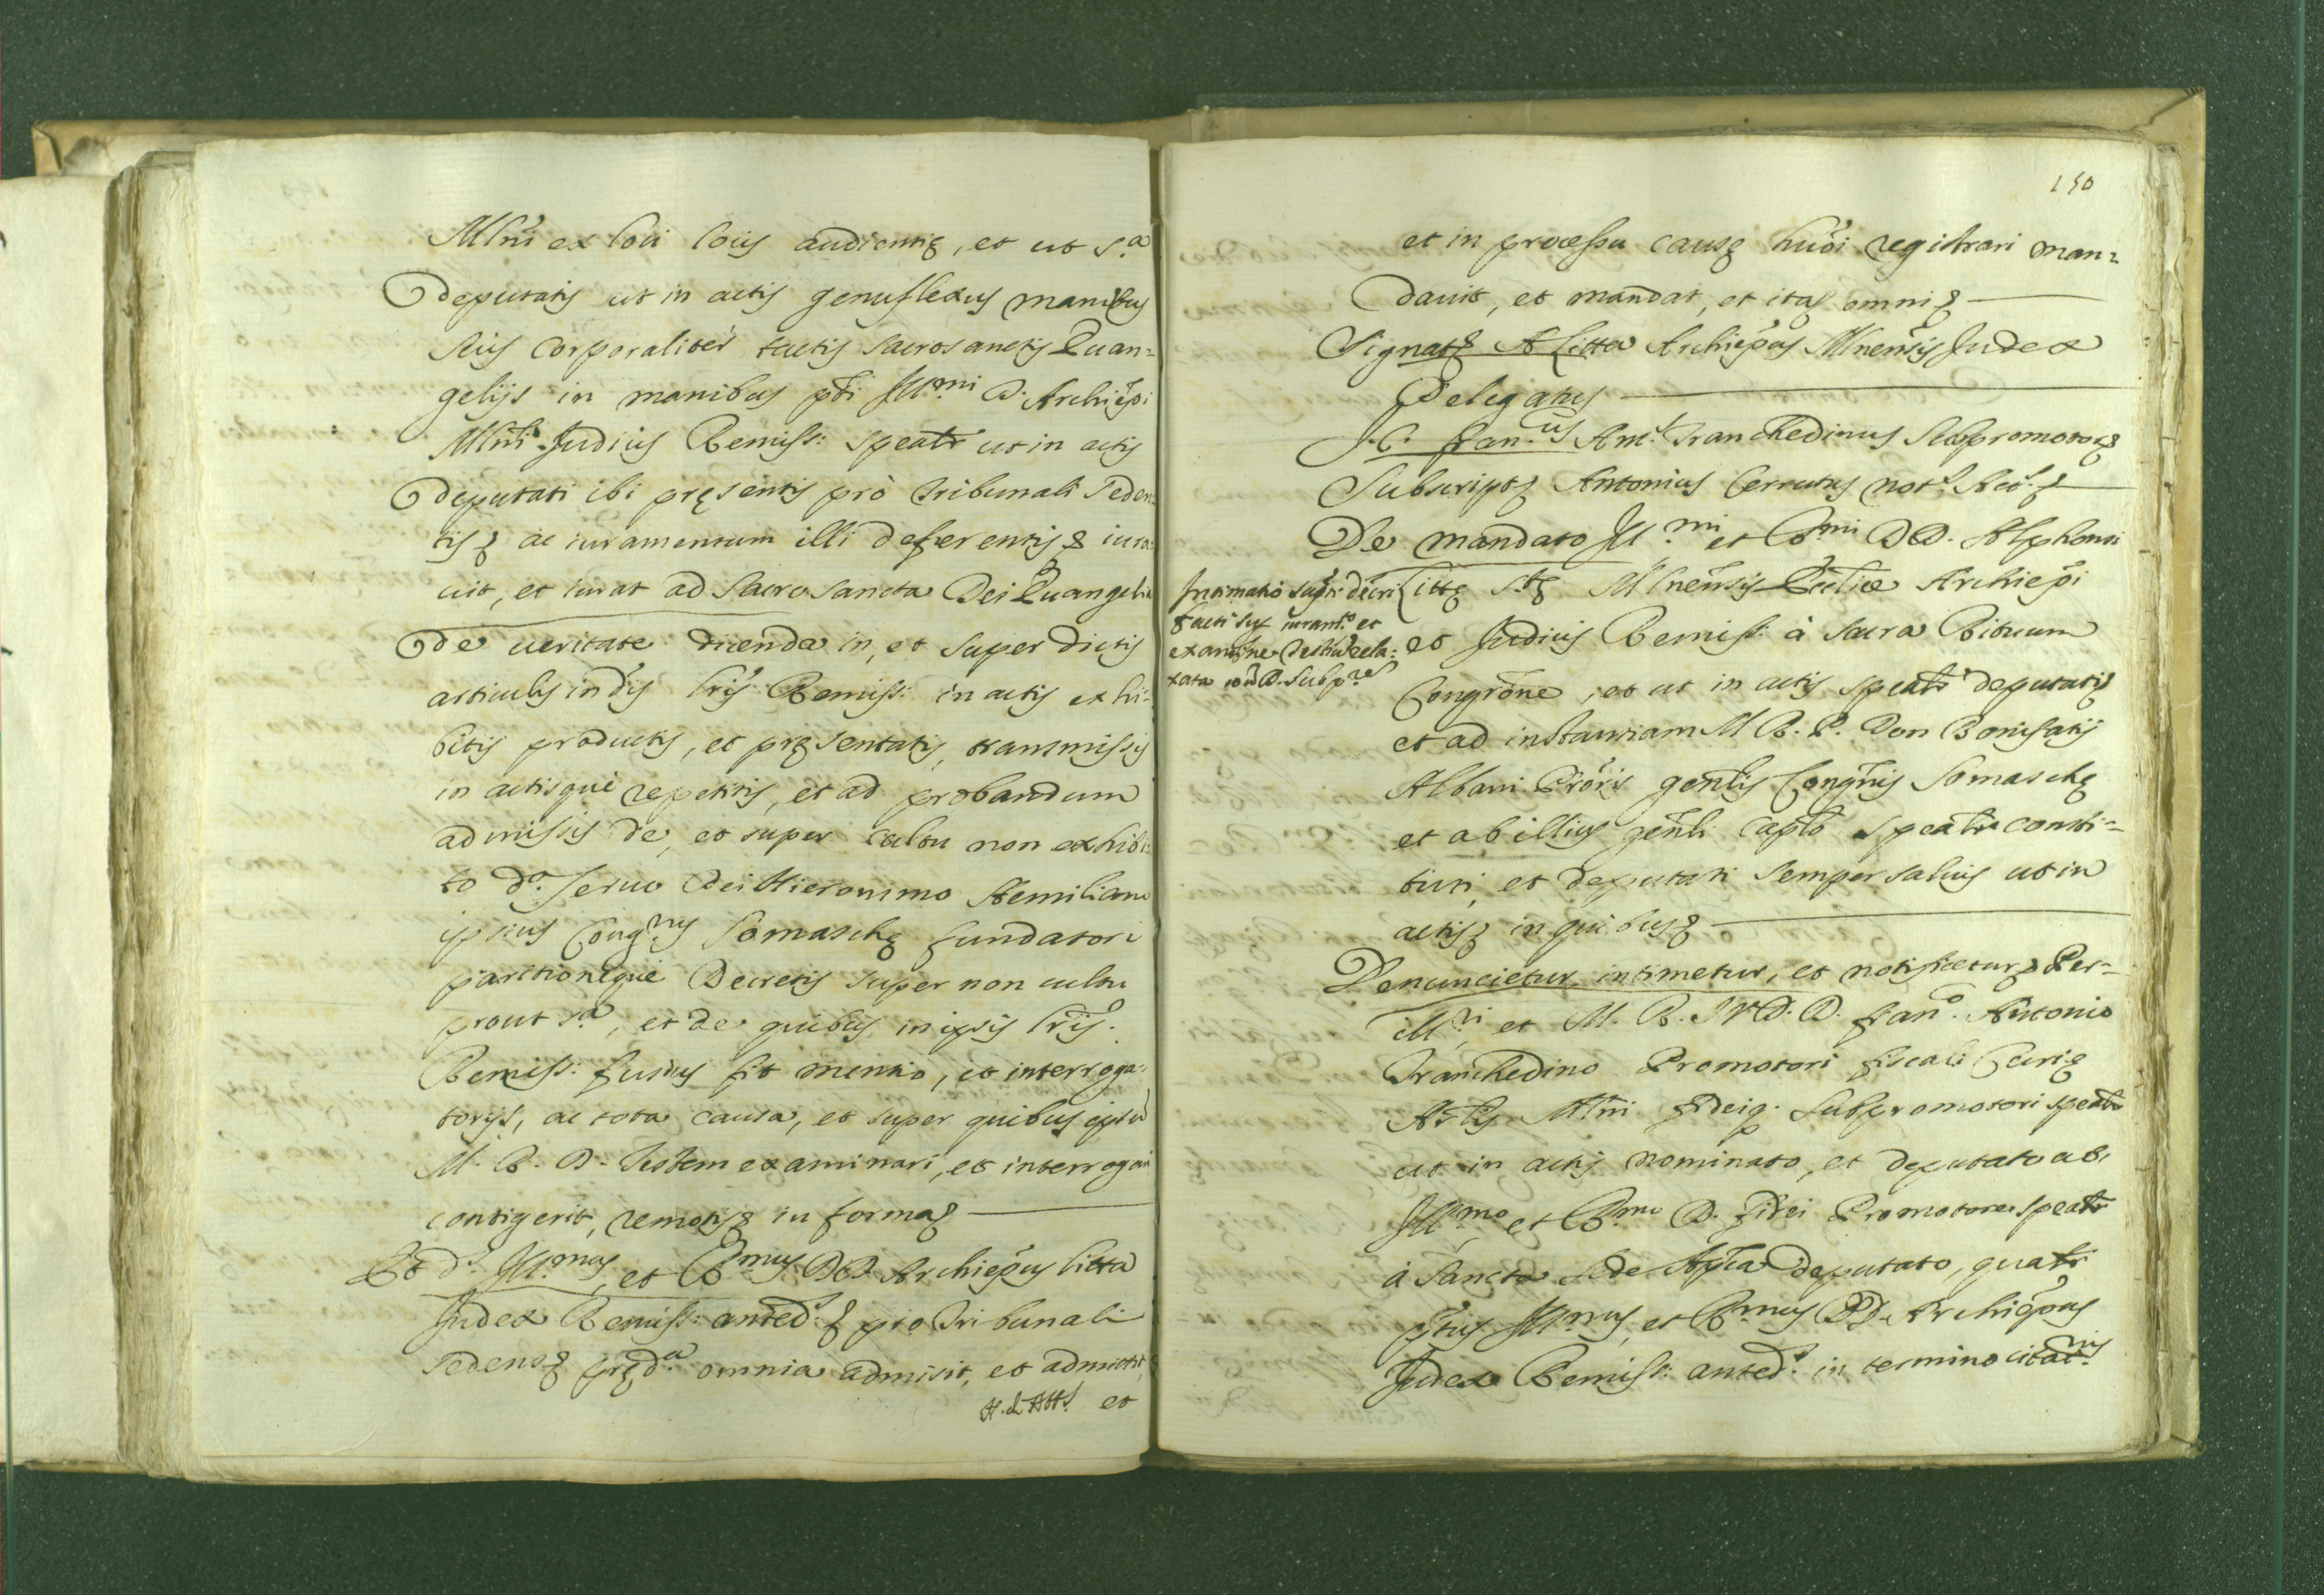 Mlni ex loci locis audientię, et ut s.ª
deputatis ut in actis genuflexus manibus
suis corporalitèr tactis sacrosanctis Euan=
gelijs in manibus pti Ill.mi D. Archiepi
Mlni Judicis Remiss: speatr ut in actis
deputati ibi pręsentis prò tribunali seden=
tis ac iuramentum illi deferentis iura=
uit, et iurat ad Sacrosancta Dei Euangelia
de ueritate dicenda in, et super dictis
articulis in dis lris Remiss: in actis exhi=
bitis productis, et pręsentatis, transmissis
in actisquè repetitis, et ad probandum
admissis de, et super cultu non exhibi=
to d.º seruo Dei Hieronimo Aemiliano
ipsius Cong.nis Somaschę fundatori
paritionequè Decretis super non cultu
prout s.ª, et de quibus in ipsis lris.
Remiss: fusius fit mentio, et interroga=
torijs, ac tota causa, et super quibus ipsu
M. R. D. testem examinari, et interrogari
contigerit, remotis in forma
Et d.s Ill.mus, et R.mus DD. Archiepus Litta
Judex Remiss: anted.s pro Tribunali
sedens pręd.ª omnia admisit, et admittit,
et
150
et in processu causę huoi registrari man=
dauit, et mandat, et ita omni
Signat A Litta Archiepus Mlnensis Judex
Delegatus
J. C. Fran.us Ant.s Tranchedinus Subpromotor
Subscript Antonius Cerrutus not.s Act.s
De mandato Ill.mi et R.mi DD. Alphonsi
Intimatio supr: decri
facti sup iuram.to et
examine Testiu rela=
xata cod D. Subp.re
Littę Stę Mlnensis Eccliæ Archiepi
et Judicis Remiss: à sacra Rituum
Congrõne, et ut in actis speatr deputatis
et ad instantiam M. R. P. Don Bonifatij
Albani Prõris genlis Congrnis Somaschę
et ab illius genli caplo speatr consti=
tuti, et deputati semper saluis ut in
actis in quibus
Denuncietur, intimetur, et notificetur Per=
ill.ri et M. R. J. V. D. D. Fran.º Antonio
Tranchedino Promotori fiscali Curię
Archlis Mlni fideiq. Subpromotori speatr
ut in actis nominato, et deputato ab
Ill.mo et R.mo D. fidei Promotore speatr
à Sancta Sede Aplica deputato, quatr
ptus Ill.mus, et R.mus DD. Archiepus
Judex Remiss: anted.s in termino citat.nis